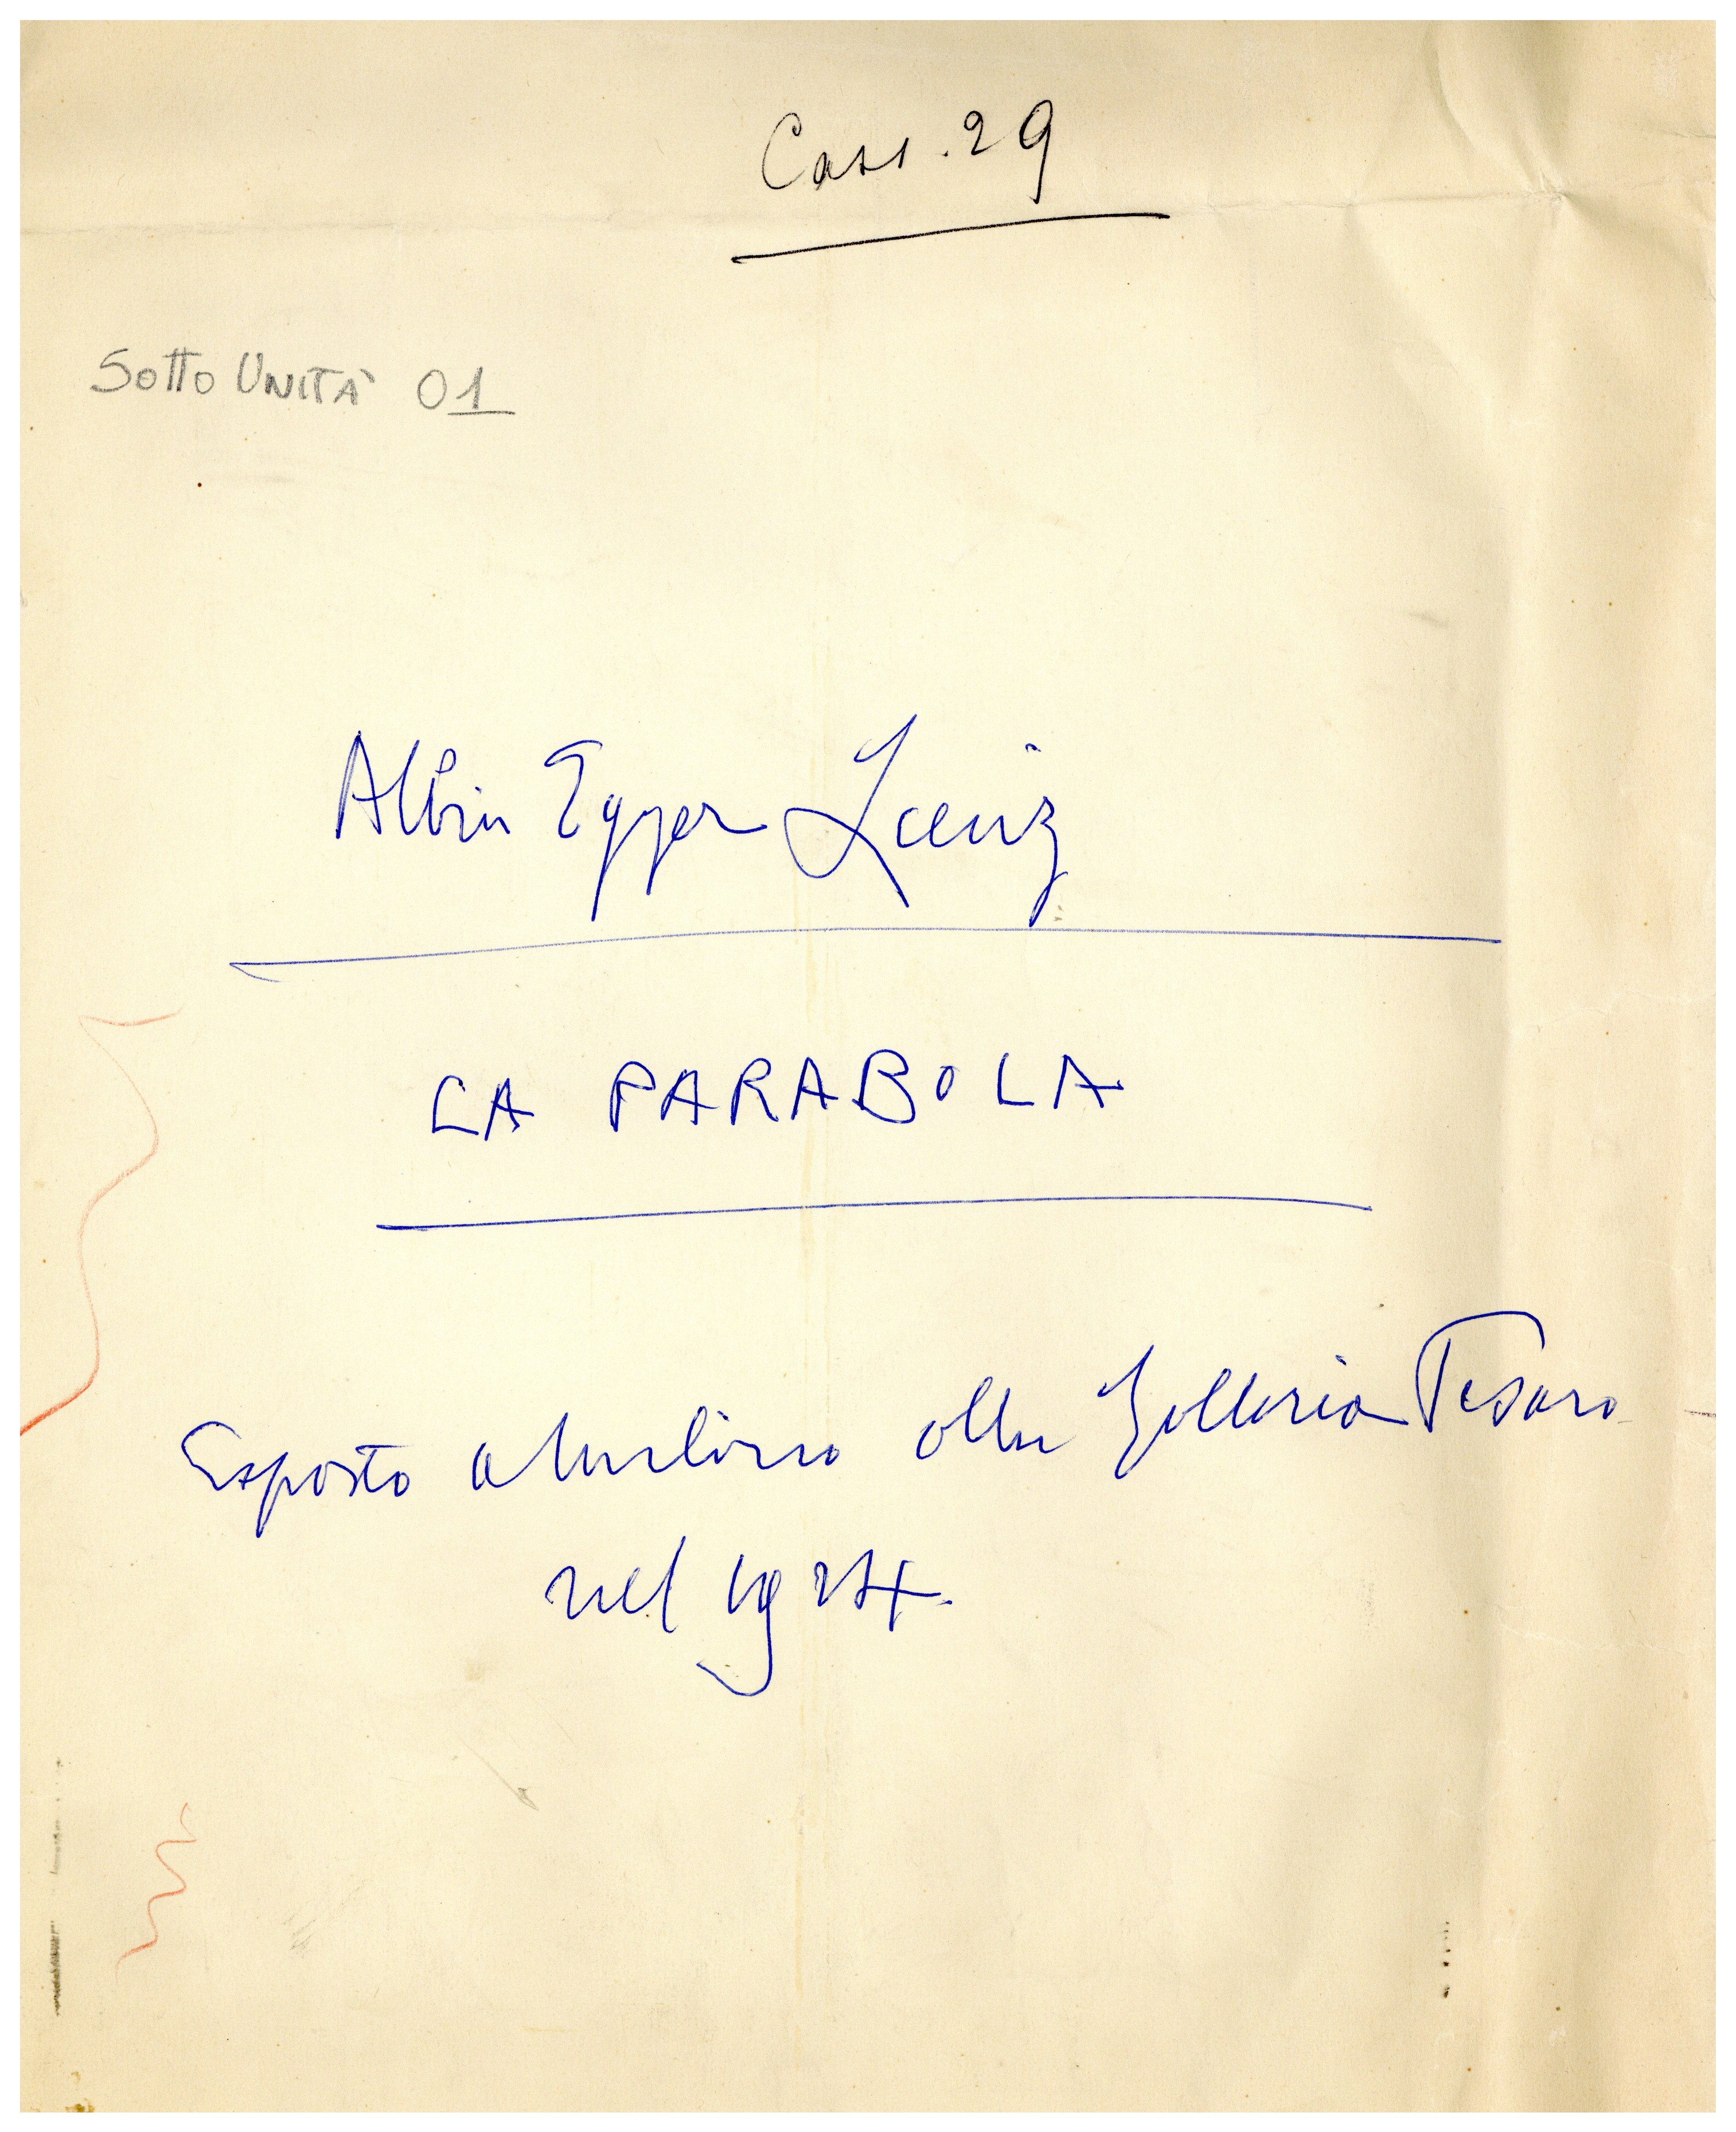 Cass. 29
SOTTO UNITÀ 01
Albin Egger Lienz
LA PARABOLA
Esposto a Milano alla Galleria Pesaro
nel 1924.